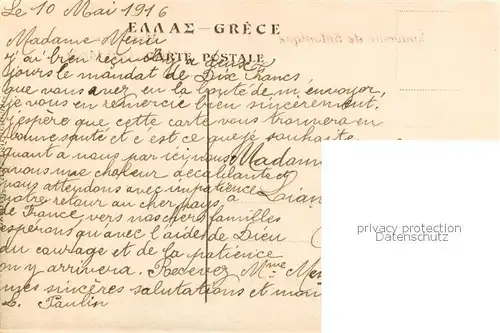 Le 10 Mai 1916
ΕΛΛΑΣ - GRÈCE
Madame Menu
CARTE POSTALE
j'ai bien reçu il y a
jours le mandat de Dix Francs
que vous avez eu la bonté de m'envoyer,
je vous en remercie bien sincèrement.
j'espère que cette carte vous trouvera en
bonne santé et c'est ce que je souhaite
quant à nous par ici nous
Madame
avons une chaleur accablante et
nous attendons avec impatience
notre retour au cher pays, à
de France, vers nos chers familles
espérons qu'avec l'aide de Dieu
du courage et de la patience
on y arrivera. Recevez Mme
mes sincères salutations et
L. Paulin
privacy protection
Datenschutz